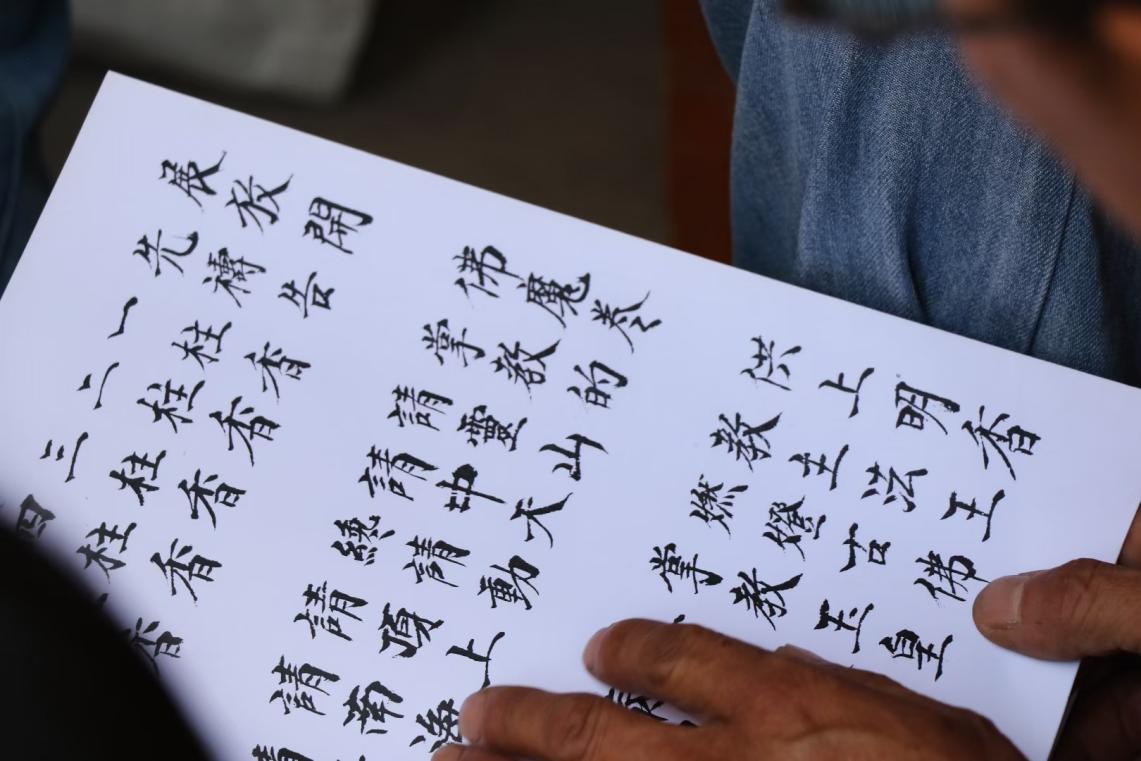 展放開 佛魔表 供上明香
先禱告 掌教的 教主法王
一柱香 請靈山 燃燈古佛
二柱香 請中天 掌教玉皇
三柱香 總請動
四柱香 請上
香 請南
請